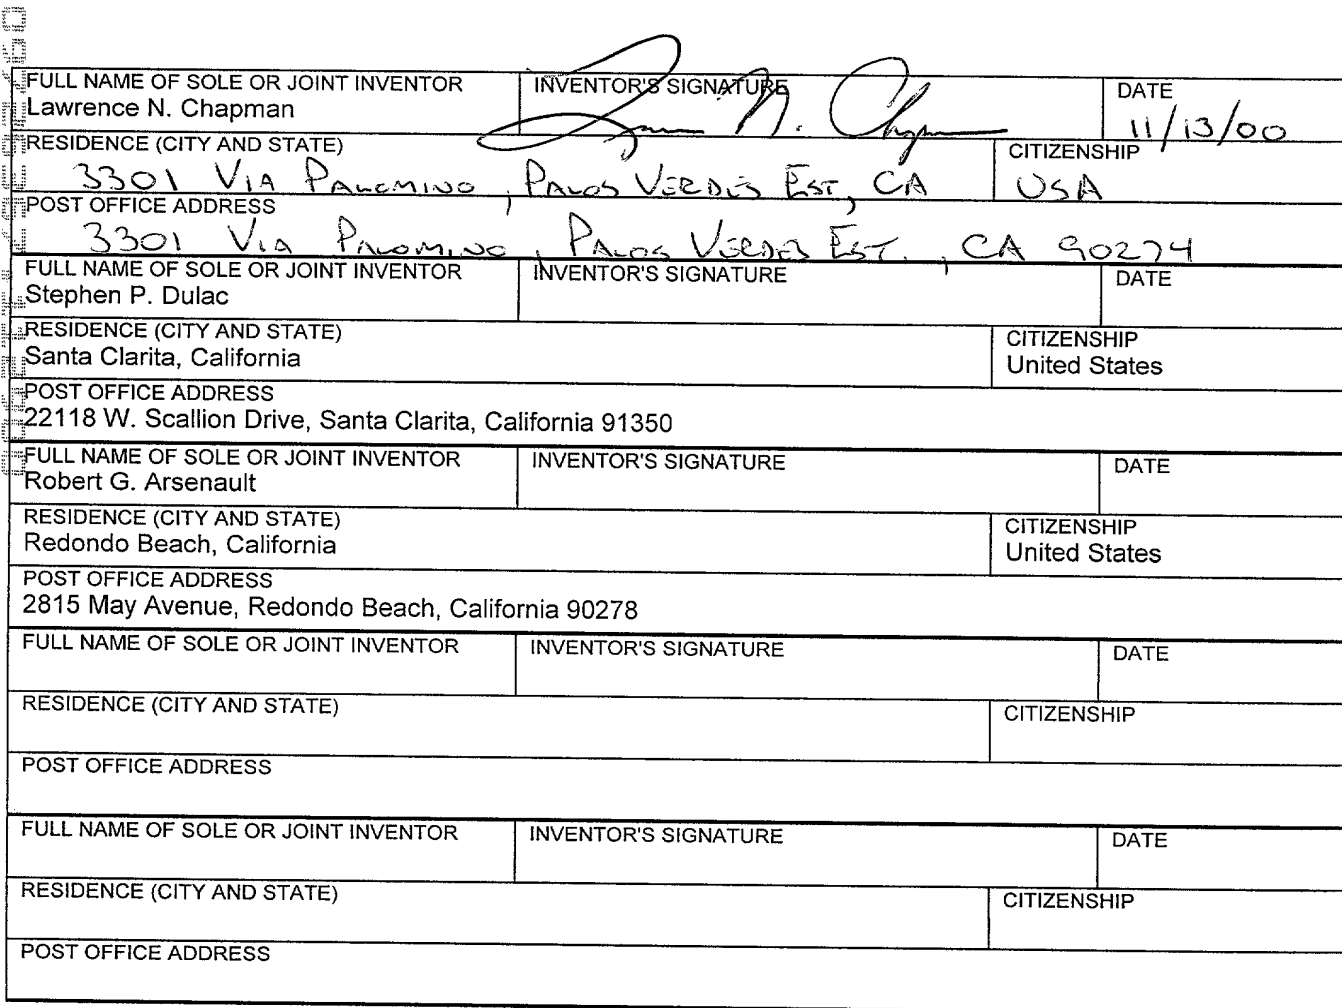 FULL NAME OF SOLE OR JOINT INVENTOR INVENTOR'S SIGNATURE DATE
Lawrence N. Chapman N. Chapman 11/13/00
RESIDENCE (CITY AND STATE) CITIZENSHIP
3301 VIA PALOMINO, PALOS VERDES EST, CA USA
POST OFFICE ADDRESS
3301 VIA PALOMINO, PALOS VERDES EST., CA 90274
FULL NAME OF SOLE OR JOINT INVENTOR INVENTOR'S SIGNATURE DATE
Stephen P. Dulac
RESIDENCE (CITY AND STATE) CITIZENSHIP
Santa Clarita, California United States
POST OFFICE ADDRESS
22118 W. Scallion Drive, Santa Clarita, California 91350
FULL NAME OF SOLE OR JOINT INVENTOR INVENTOR'S SIGNATURE DATE
Robert G. Arsenault
RESIDENCE (CITY AND STATE) CITIZENSHIP
Redondo Beach, California United States
POST OFFICE ADDRESS
2815 May Avenue, Redondo Beach, California 90278
FULL NAME OF SOLE OR JOINT INVENTOR INVENTOR'S SIGNATURE DATE
RESIDENCE (CITY AND STATE) CITIZENSHIP
POST OFFICE ADDRESS
FULL NAME OF SOLE OR JOINT INVENTOR INVENTOR'S SIGNATURE DATE
RESIDENCE (CITY AND STATE) CITIZENSHIP
POST OFFICE ADDRESS